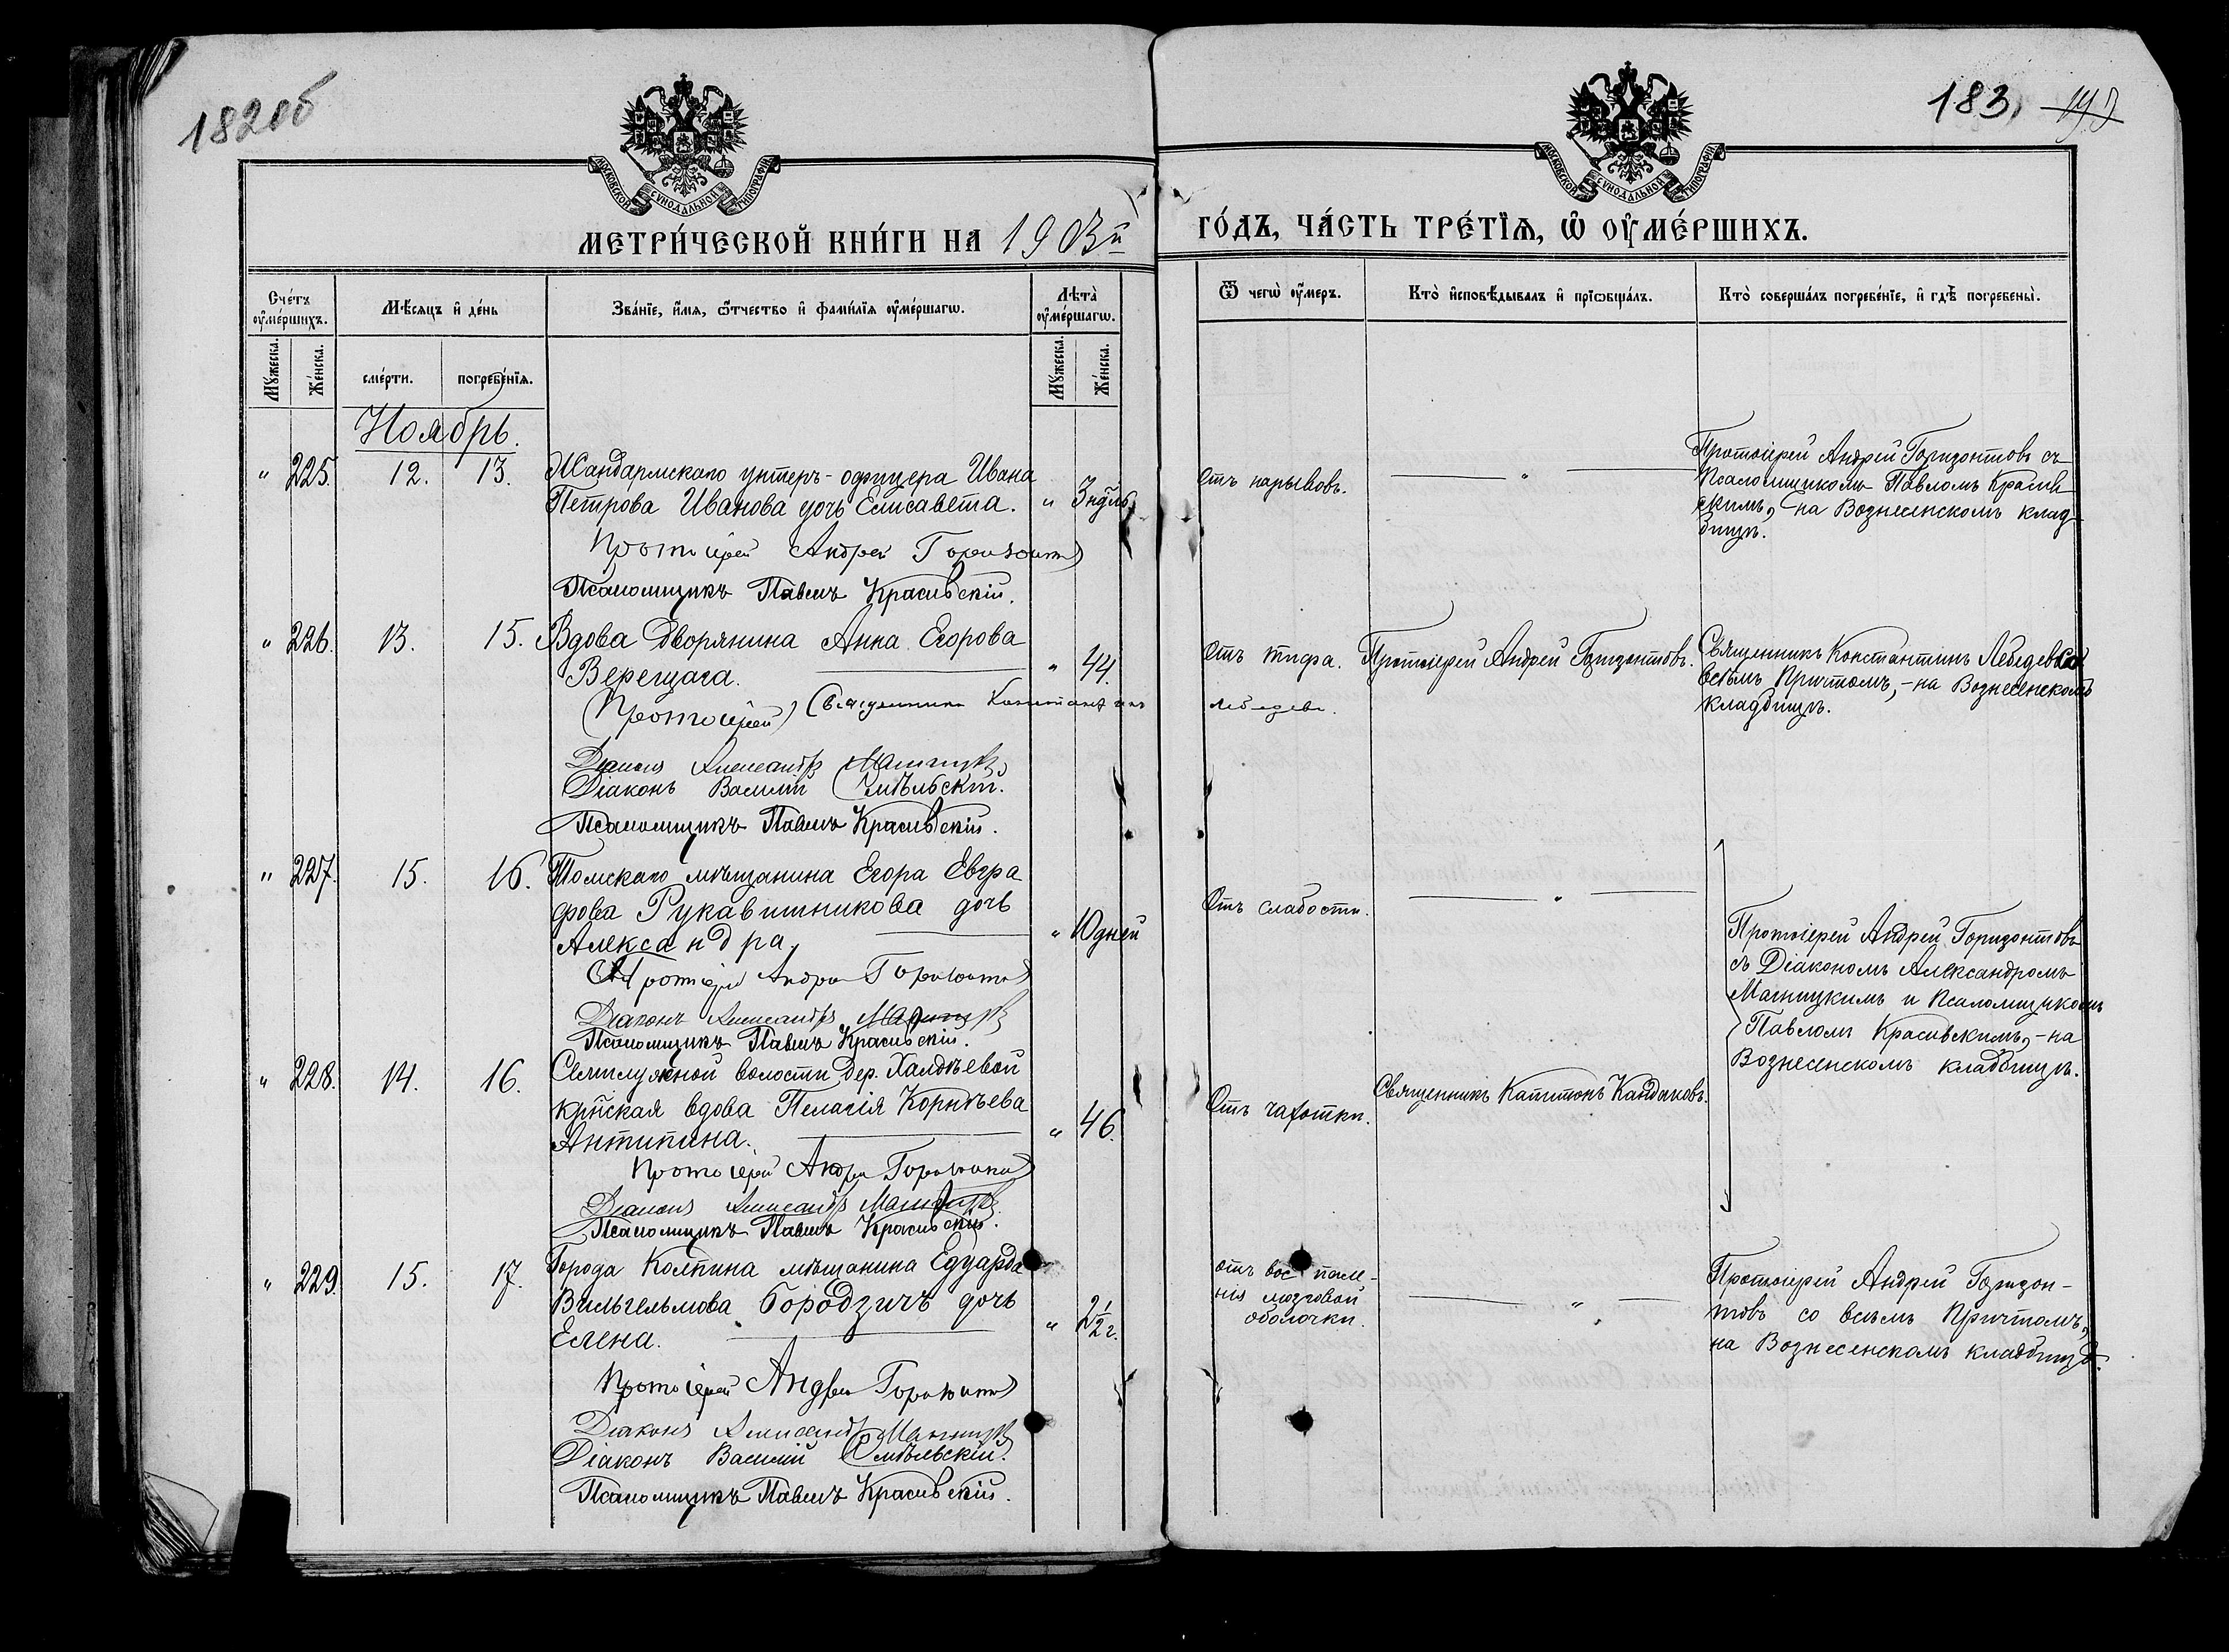 182об
183. 197
МОСКОВСКОЙ СѴНОДАЛЬНОЙ ТИПОГРАФІИ
МОСКОВСКОЙ СѴНОДАЛЬНОЙ ТИПОГРАФІИ
МЕТРИ́ЧЕСКОЙ КНИ́ГИ НА 1903й ГО́ДЪ, ЧА́СТЬ ТРЕ́ТЇѦ, Ѿ ОУ҆МЕ́РШИХЪ.
Сче́тъ оу҆ме́ршихъ.
Мѣ́сяцъ и҆ де́нь
Зва́нїе, и҆́мѧ, ѻ҆́тчество и҆ фами́лїѧ оу҆ме́ршагѡ.
Лѣта̀ оу҆ме́ршагѡ.
Ѿ чегѡ̀ оу҆́меръ.
Кто̀ и҆сповѣ́дывалъ и҆ прїѡбща́лъ.
Кто̀ соверша́лъ погребе́нїе, и҆ гдѣ̀ погребены̀.
Мꙋ́жеска. Же́нска. сме́рти. погребе́нїѧ. Мꙋ́жеска. Же́нска.
Ноябрь.
" 225. 12. 13. Жандармскаго унтеръ-офицера Ивана
Петрова Иванова дочь Елисавета. " 3 нѣд.
Протоіерей Андрей Горизонтовъ
Псаломщикъ Павелъ Красивскій.
Отъ нарывовъ.
"
Протоіерей Андрей Горизонтовъ съ
Псаломщикомъ Павломъ Красив
скимъ, на Вознесенскомъ клад
бищѣ.
" 226. 13. 15. Вдова Дворянина Анна Егорова
Верещага. " 44.
(Протоіерей) Священникъ Константинъ Лебедевъ.
Діаконъ Александръ Магницкій
Діаконъ Василій Смѣльскій.
Псаломщикъ Павелъ Красивскій.
Отъ тифа.
Протоіерей Андрей Горизонтовъ.
Священникъ Константинъ Лебедевъ со
всѣмъ Причтомъ,-на Вознесенскомъ
кладбищѣ.
" 227. 15. 16. Томскаго мѣщанина Егора Евгра
фова Рукавишникова дочь
Александра. " 10 дней
Протоіерей Андрей Горизонтовъ
Діаконъ Александръ Магницкій
Псаломщикъ Павелъ Красивскій.
Отъ слабости.
"
Протоіерей Андрей Горизонтовъ
съ Діакономъ Александромъ
Магницкимъ и Псаломщикомъ
Павломъ Красивскимъ,-на
Вознесенскомъ кладбищѣ.
" 228. 14. 16. Семилужной волости дер. Халдѣевой
кр͠нская вдова Пелагія Корнѣева
Антипина. " 46.
Протоіерей Андрей Горизонтовъ
Діаконъ Александръ Магницкій
Псаломщикъ Павелъ Красивскій.
Отъ чахотки.
Священникъ Капитонъ Кандаковъ.
" 229. 15. 17. Города Колпина мѣщанина Едуарда
Вильгельмова Бородзичъ дочь
Елена. " 2 1/2 г.
Протоіерей Андрей Горизонтовъ
Діаконъ Александръ Магницкій
Діаконъ Василій Смѣльскій.
Псаломщикъ Павелъ Красивскій.
отъ воспале-
нія мозговой
оболочки.
"
Протоіерей Андрей Горизон-
товъ со всѣмъ Причтомъ,
на Вознесенскомъ кладбищѣ.